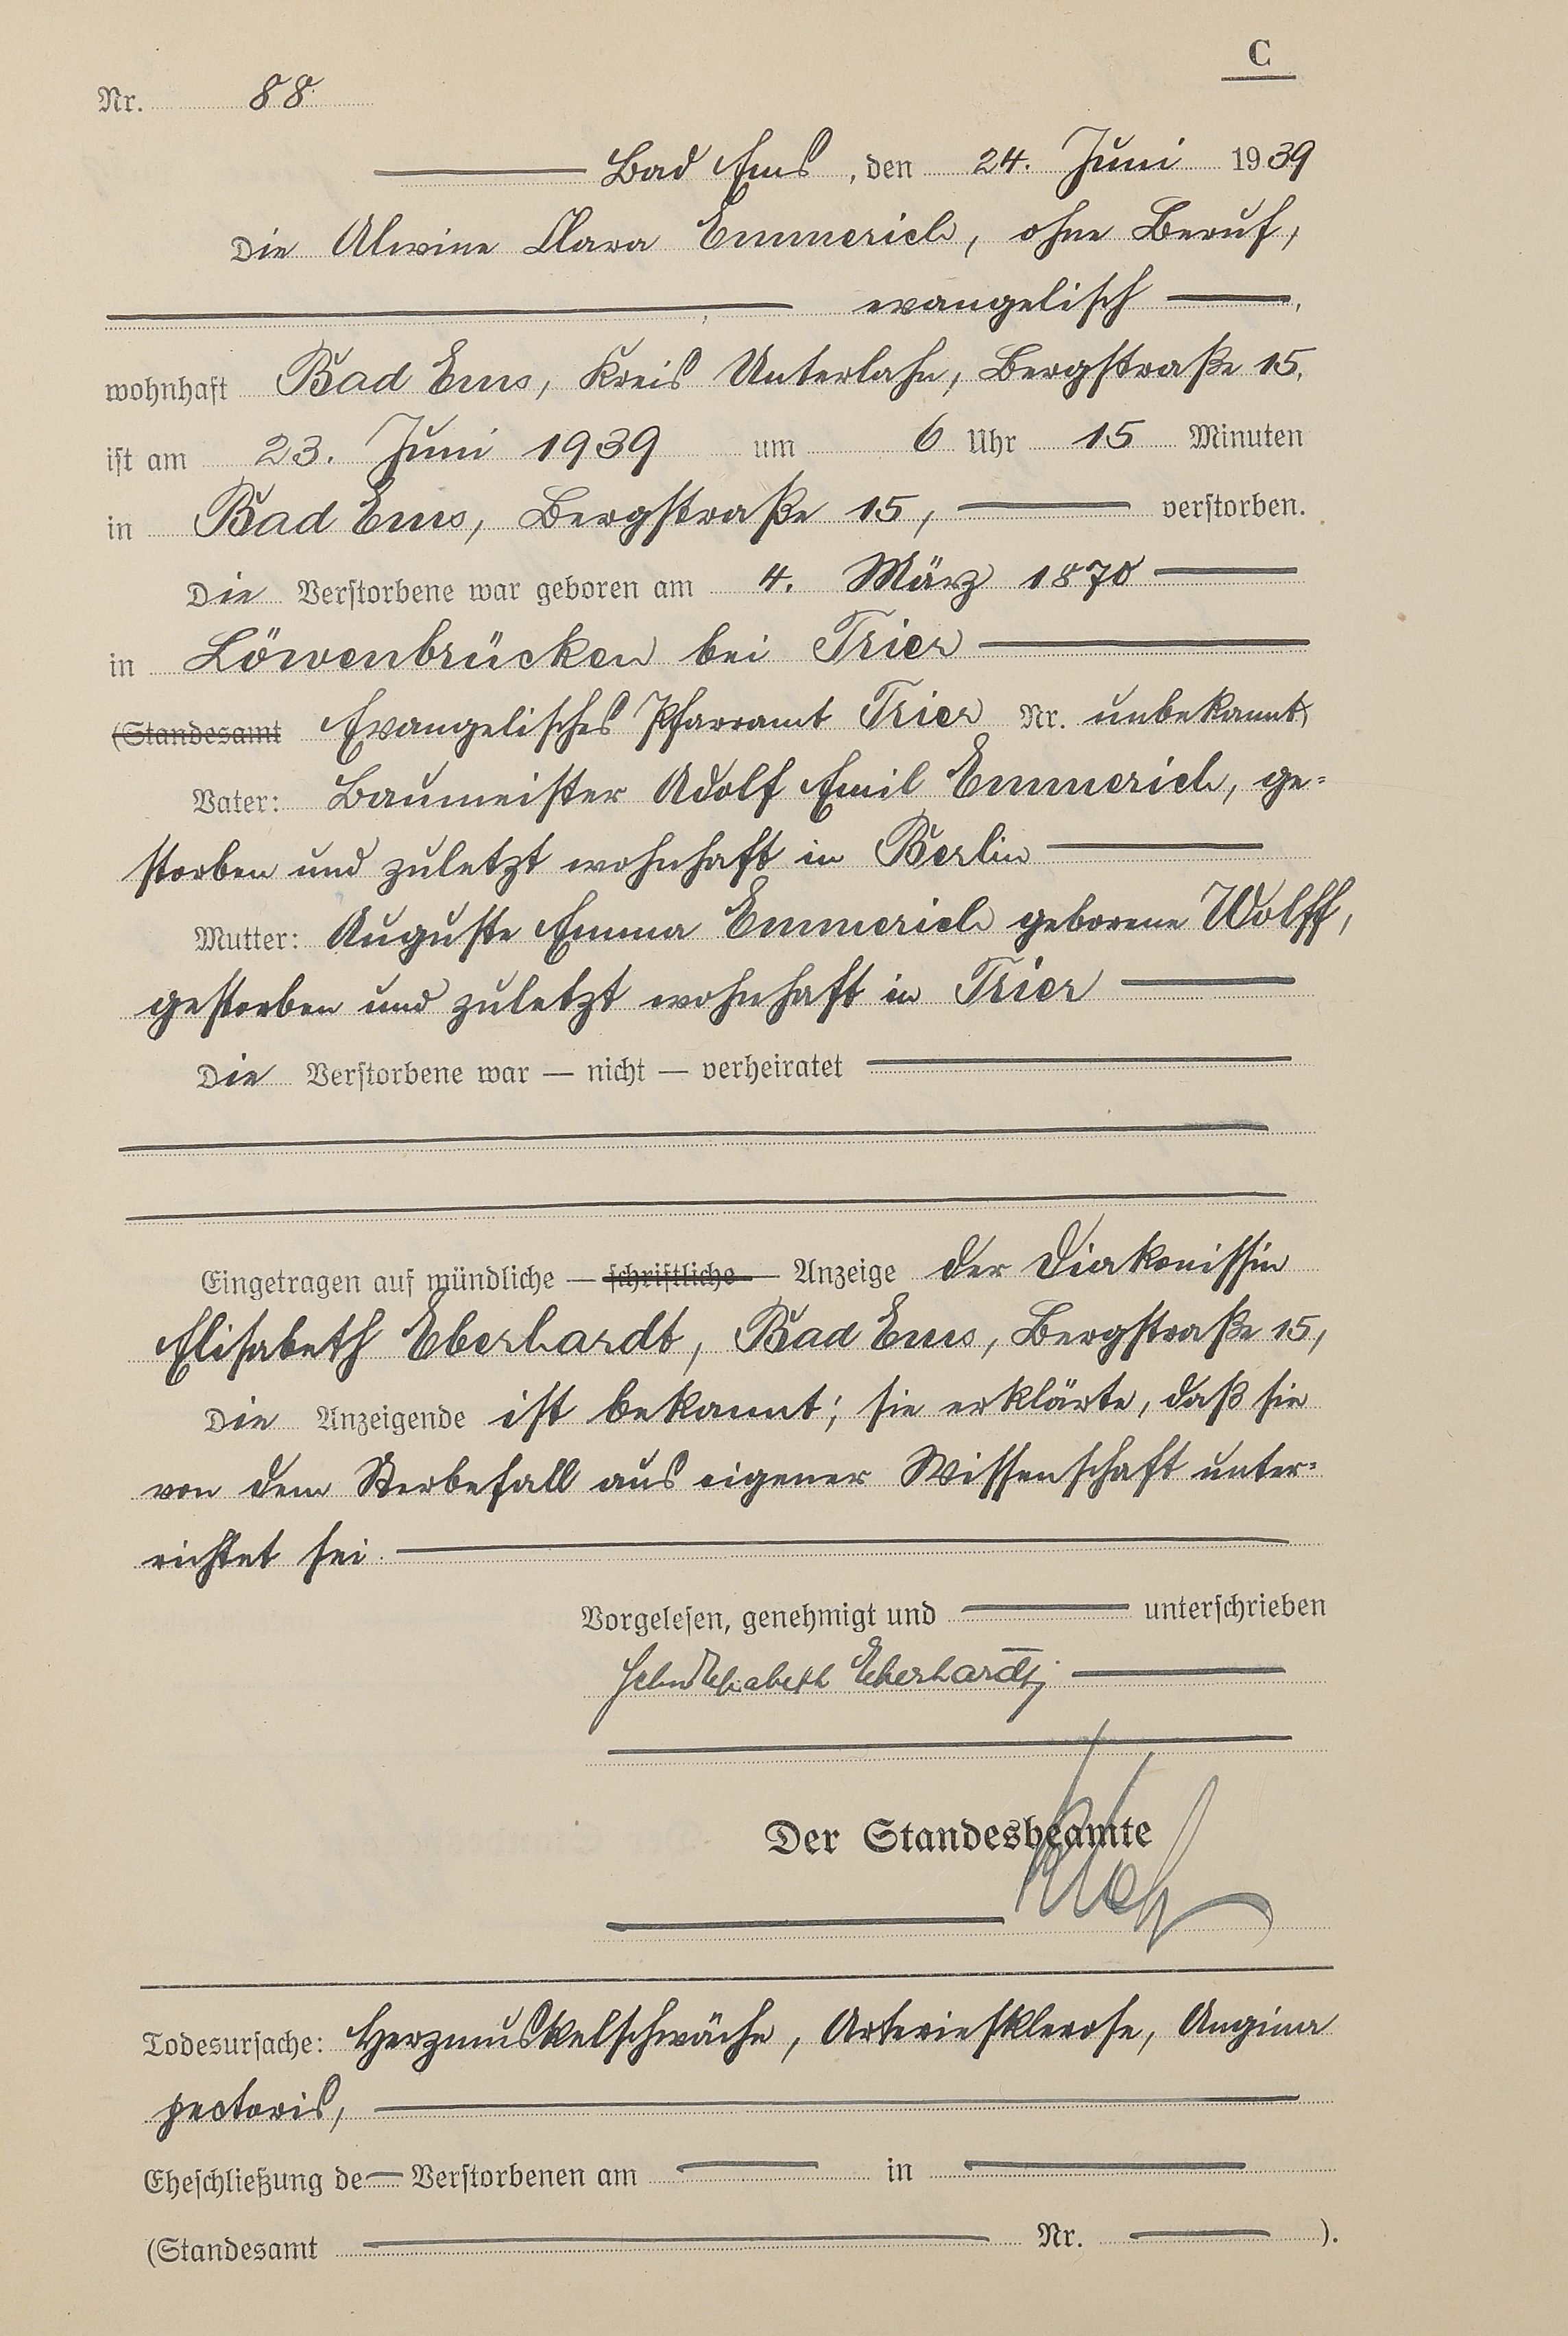 C
Nr. 88.
Bad Ems, den 24. Juni 1939
Die Alwine Clara Emmerich, ohne Beruf,
evangelisch,
wohnhaft Bad Ems, Kreis Unterlahn, Bergstraße 15,
ist am 23. Juni 1939 um 6 Uhr 15 Minuten
in Bad Ems, Bergstraße 15, verstorben.
Die Verstorbene war geboren am 4. März 1870
in Löwenbrücken bei Trier
(Standesamt Evangelisches Pfarramt Trier Nr. unbekannt)
Vater: Baumeister Adolf Emil Emmerich, ge=
storben und zuletzt wohnhaft in Berlin
Mutter: Auguste Emma Emmerich geborene Wolff,
gestorben und zuletzt wohnhaft in Trier
Die Verstorbene war — nicht — verheiratet
Eingetragen auf mündliche — schriftliche — Anzeige der Diakonissin
Elisabeth Eberhardt, Bad Ems, Bergstraße 15,
Die Anzeigende ist bekannt; sie erklärte, daß sie
von dem Sterbefall aus eigener Wissenschaft unter=
richtet sei.
Vorgelesen, genehmigt und unterschrieben
Elisabeth Eberhardt
Der Standesbeamte
Todesursache: Herzmuskelschwäche, Arteriesklerose, Angina
pectoris,
Eheschließung de Verstorbenen am in
(Standesamt Nr. ).